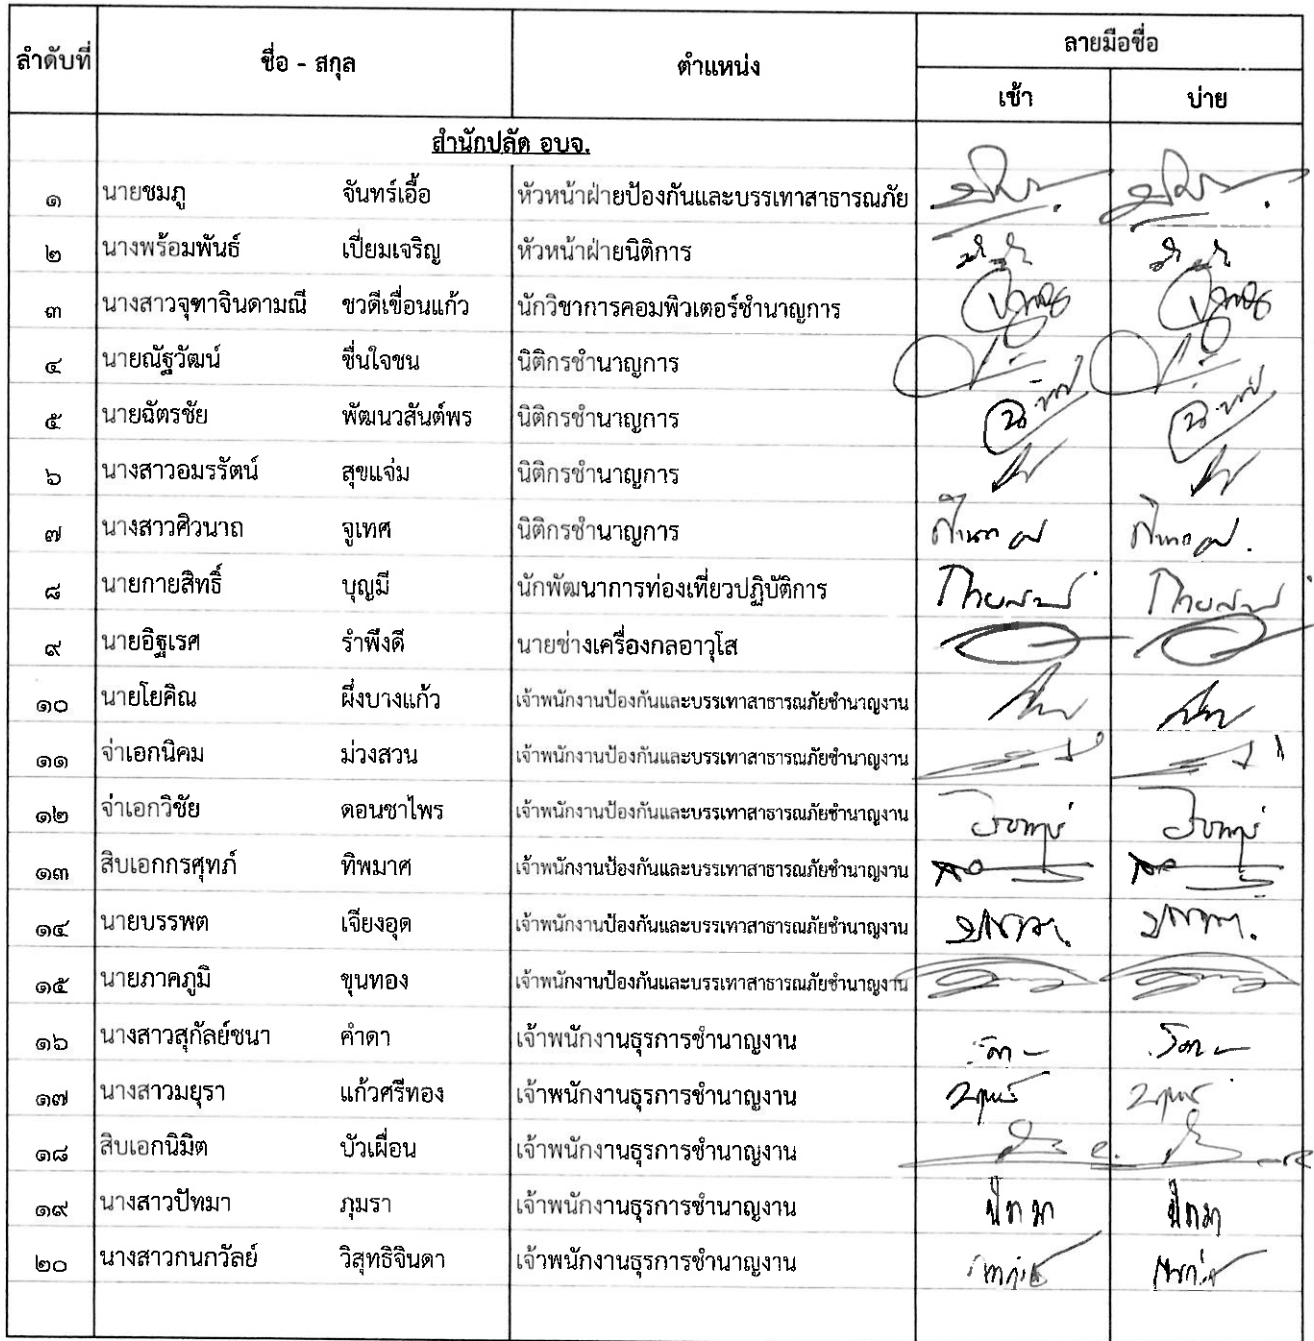 ลำดับที่ ชื่อ - สกุล ตำแหน่ง ลายมือชื่อ
เช้า บ่าย
สำนักปลัด อบจ.
๑ นายชมภู จันทร์เอื้อ หัวหน้าฝ่ายป้องกันและบรรเทาสาธารณภัย
๒ นางพร้อมพันธ์ เปี่ยมเจริญ หัวหน้าฝ่ายนิติการ
๓ นางสาวจุฑาจินดามณี ชวดีเขื่อนแก้ว นักวิชาการคอมพิวเตอร์ชำนาญการ
๔ นายณัฐวัฒน์ ชื่นใจชน นิติกรชำนาญการ
๕ นายฉัตรชัย พัฒนวสันต์พร นิติกรชำนาญการ
๖ นางสาวอมรรัตน์ สุขแจ่ม นิติกรชำนาญการ
๗ นางสาวศิวนาถ จูเทศ นิติกรชำนาญการ
๘ นายกายสิทธิ์ บุญมี นักพัฒนาการท่องเที่ยวปฏิบัติการ
๙ นายอิฐเรศ รำพึงดี นายช่างเครื่องกลอาวุโส
๑๐ นายโยคิณ ผึ่งบางแก้ว เจ้าพนักงานป้องกันและบรรเทาสาธารณภัยชำนาญงาน
๑๑ จ่าเอกนิคม ม่วงสวน เจ้าพนักงานป้องกันและบรรเทาสาธารณภัยชำนาญงาน
๑๒ จ่าเอกวิชัย ดอนชาไพร เจ้าพนักงานป้องกันและบรรเทาสาธารณภัยชำนาญงาน
๑๓ สิบเอกกรศุทภ์ ทิพมาศ เจ้าพนักงานป้องกันและบรรเทาสาธารณภัยชำนาญงาน
๑๔ นายบรรพต เจียงอุด เจ้าพนักงานป้องกันและบรรเทาสาธารณภัยชำนาญงาน
๑๕ นายภาคภูมิ ขุนทอง เจ้าพนักงานป้องกันและบรรเทาสาธารณภัยชำนาญงาน
๑๖ นางสาวสุกัลย์ชนา คำดา เจ้าพนักงานธุรการชำนาญงาน
๑๗ นางสาวมยุรา แก้วศรีทอง เจ้าพนักงานธุรการชำนาญงาน
๑๘ สิบเอกนิมิต บัวเผื่อน เจ้าพนักงานธุรการชำนาญงาน
๑๙ นางสาวปัทมา ภุมรา เจ้าพนักงานธุรการชำนาญงาน ปัทมา ปัทมา
๒๐ นางสาวกนกวัลย์ วิสุทธิจินดา เจ้าพนักงานธุรการชำนาญงาน